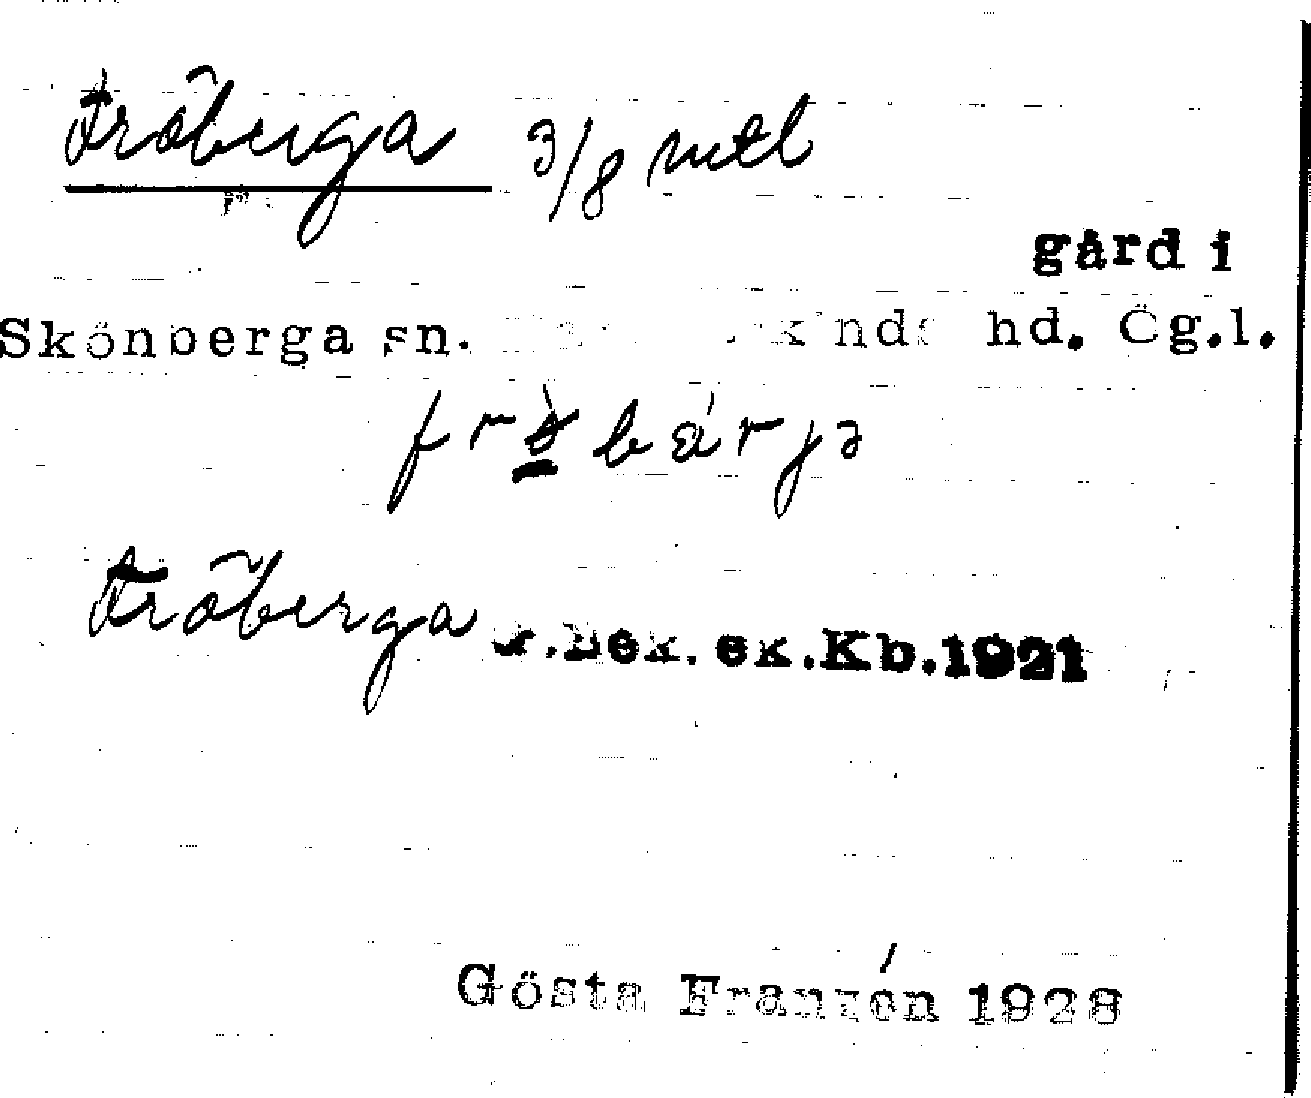 Fröberga 3/8 mtl
gård i
Skönberga sn. hd. Ög.l.
frö̀bä́rjə
Fröberga Jr.Bek.ek.Kb.1921
Gösta Franzén 1928